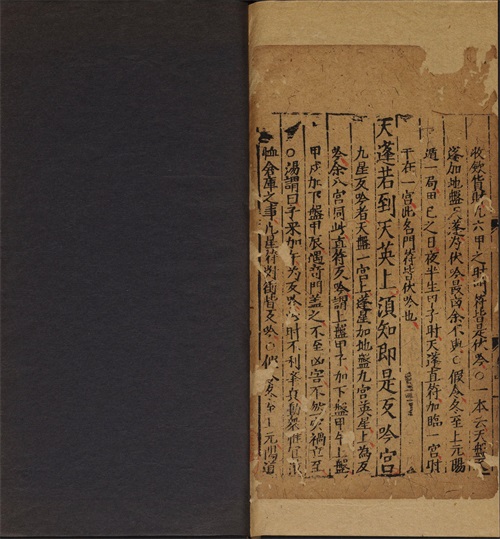 收斂貨財凡六甲之時門符皆是伏吟○一本云天盤天
蓬加地盤天蓬為伏吟最凶余不與○假令冬至上元陽
遁一局甲己之日夜半生甲子時天蓬直符加臨一宮時
干在一宮出名門符皆伏吟也
天蓬若到天英上須知即是反吟宮
九星反吟者天盤一宮上蓬星加地盤九宮英星上為反
吟余八宮同此直符反吟謂上盤甲子加下盤甲午上盤
甲戌加下盤甲辰遇奇門盖之不至凶害不然灾禍立至
○湯謂曰子來加午為反吟此時不利舉兵動衆惟宜
恤倉庫之事凡星符對衝皆反吟○假令冬至上元陽遁